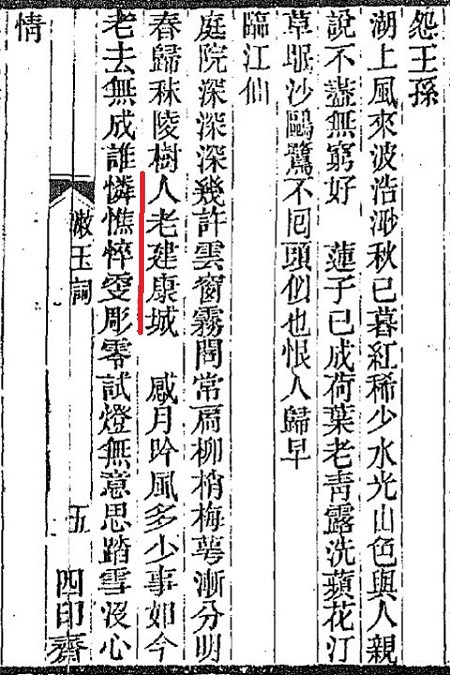 怨王孫
湖上風來波浩渺秋已暮紅稀少水光山色與人親
說不盡無窮好　蓮子已成荷葉老青露洗蘋花汀
草眠沙鷗鷺不囘頭似也恨人歸早
臨江仙
庭院深深深幾許雲窗霧閣常扃柳梢梅萼漸分明
春歸秣陵樹人老建康城　感月吟風多少事如今
老去無成誰憐憔悴更彫零試燈無意思踏雪沒心
漱玉詞　五　四印齋
情